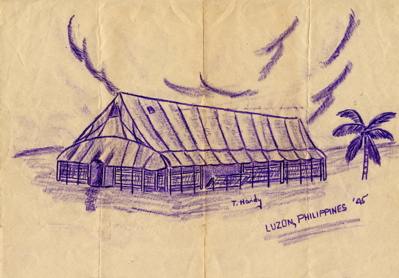 T. Hardy
LUZON, PHILIPPINES '45